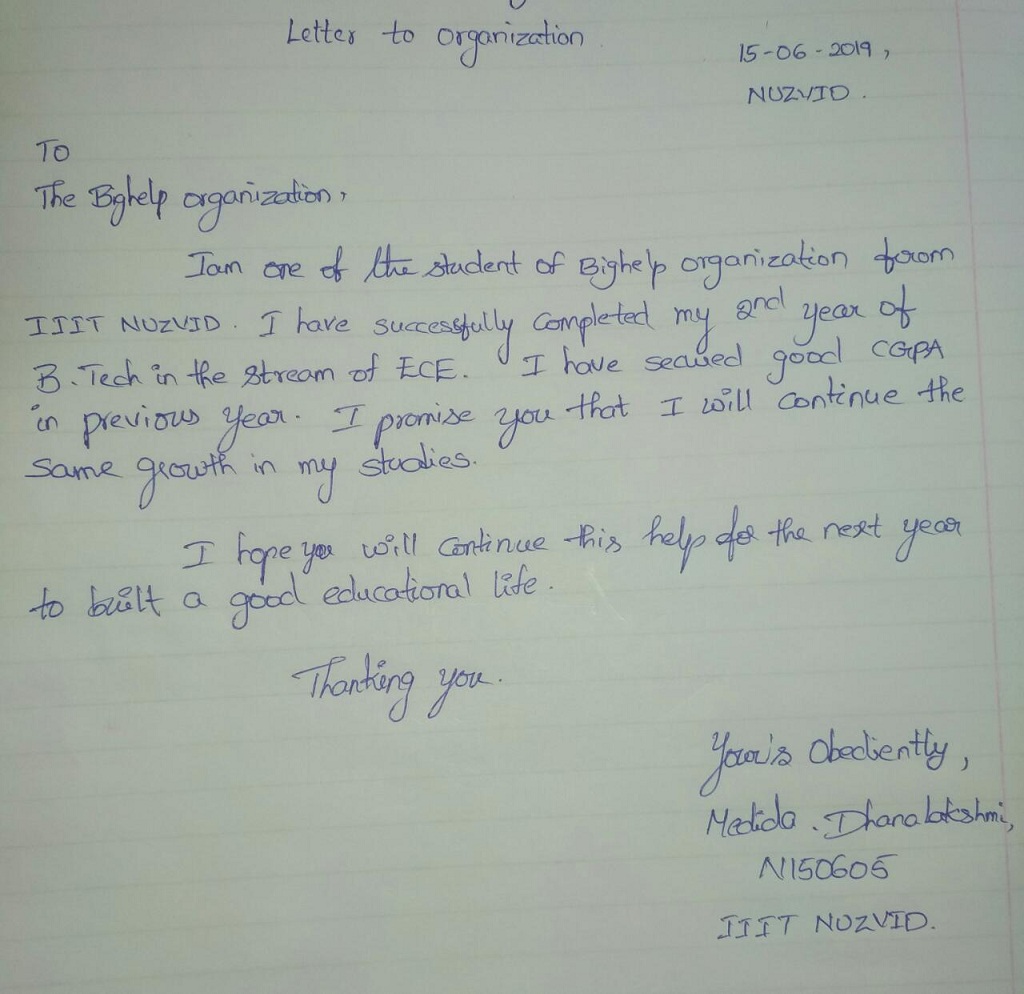 Letter to organization
15-06-2019,
NUZVID.
TO
The Bighelp organization,
Iam one of the student of Bighelp organization from
IIIT NUZVID. I have successfully completed my 2nd year of
B.Tech in the stream of ECE. I have secured good CGPA
in previous year. I promise you that I will continue the
same growth in my studies.
I hope you will continue this help for the next year
to built a good educational life.
Thanking you.
Your's Obediently,
Medida. Dhanalakshmi,
N150605
IIIT NUZVID.